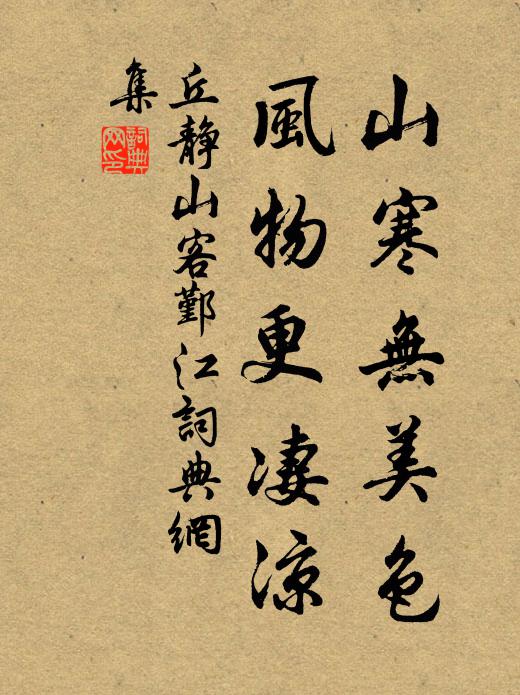 山寒無美色
風物更淒涼
丘靜山客鄞江詞典網
集
詞典
網印